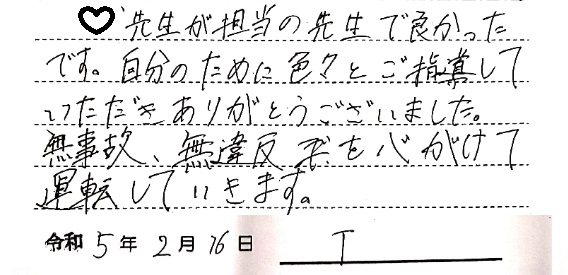 ♡先生が担当の先生で良かった
です。自分のために色々とご指導して
いただきありがとうございました。
無事故、無違反を心がけて
運転していきます。
令和5年2月16日 T